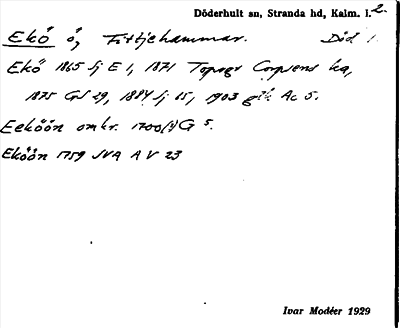 Döderhult sn, Stranda hd, Kalm. l. 2.
Ekö ö, Fittjehammar. Död 1.
Ekö 1865 Sj E 1, 1871 Topogr Corpsens ka,
1875 GS 29, 1884 Sj 15, 1903 gtk Ac 5.
Eeköön omkr. 1700(?) G 5.
Eköön 1759 SVA A V 23
Ivar Modéer 1929